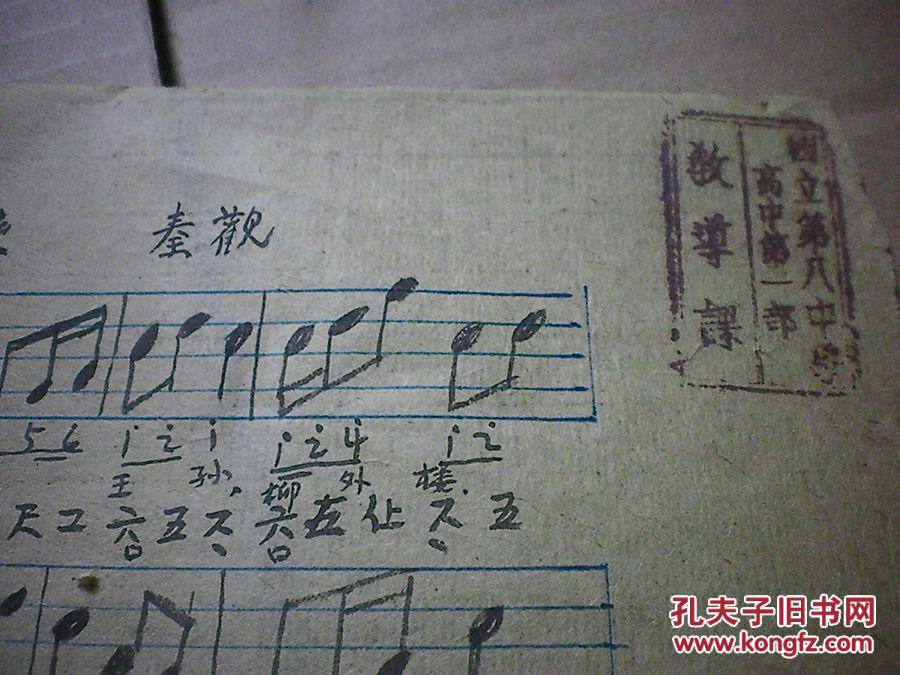 秦觀
國立第八中學
高中第一部
教導課
5 6 i 2 i i 2 4 i 2
王 孙, 柳 外 楼,
尺工六五 六五仩 五
孔夫子旧书网
www.kongfz.com